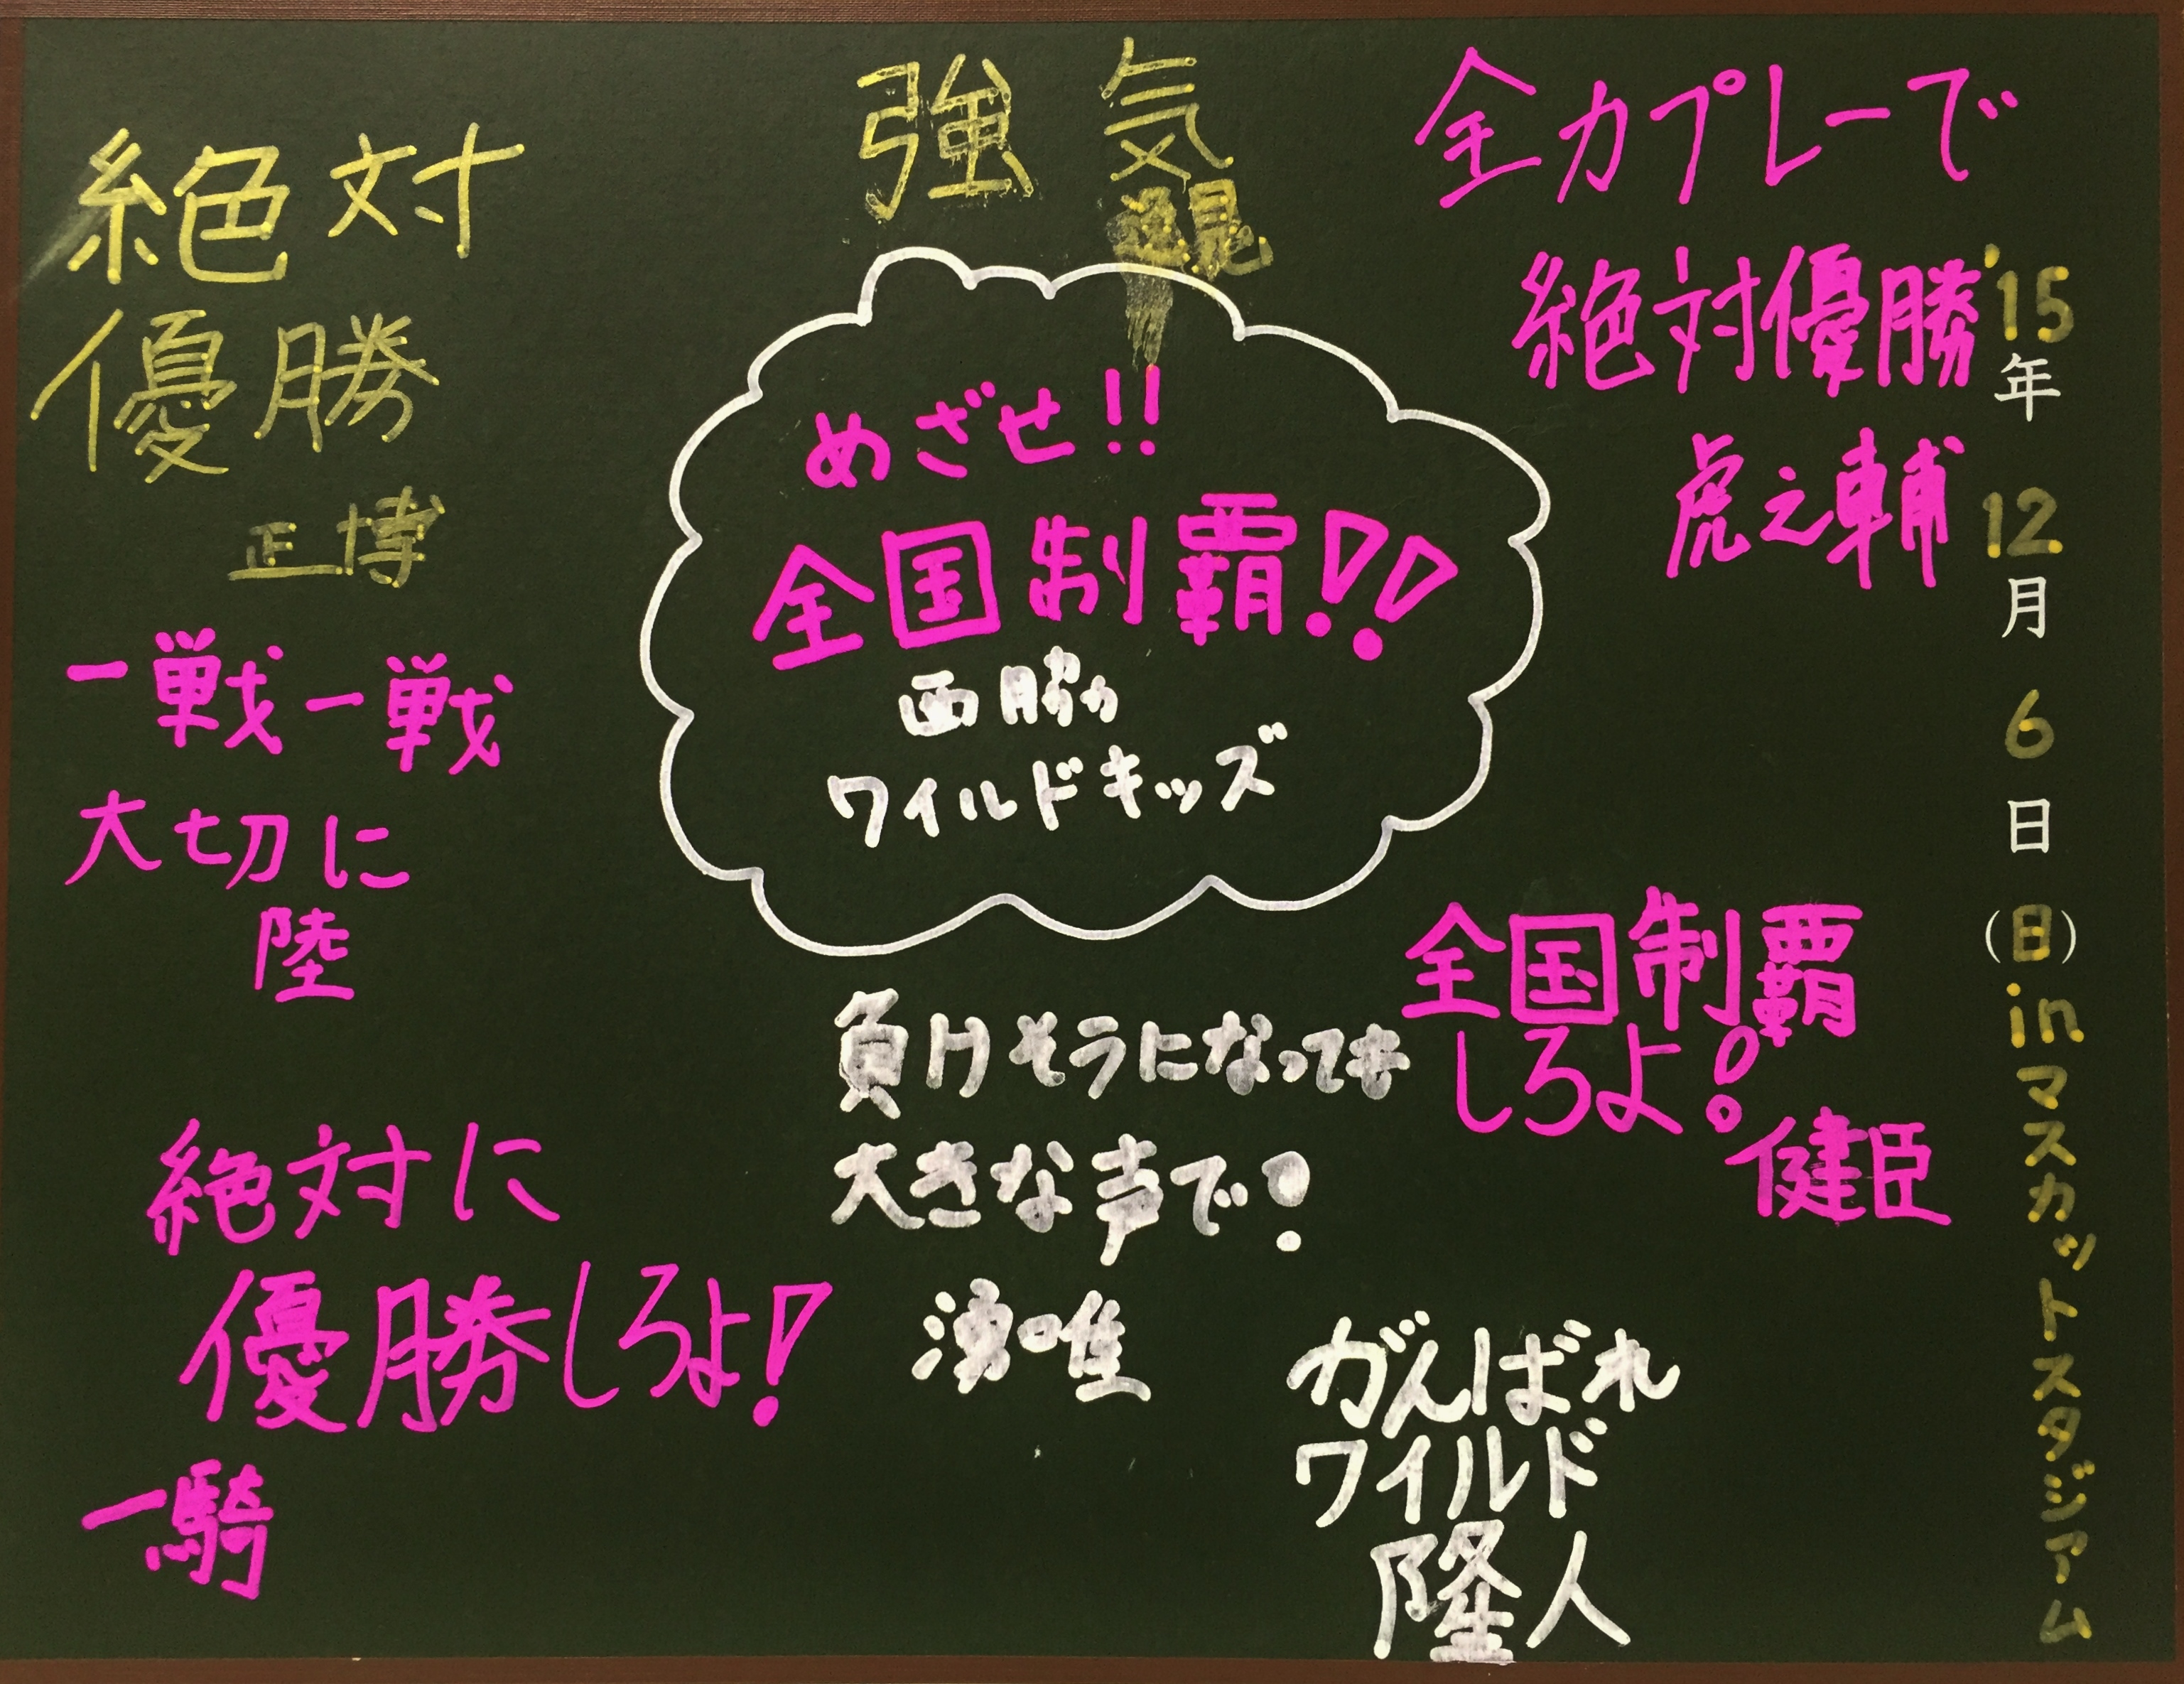 絶対
優勝
正博
一戦一戦
大切に
陸
絶対に
優勝しろよ!
一騎
強気
めざせ!!
全国制覇!!
西脇
ワイルドキッズ
負けそうになっても
大きな声で!
湧唯
がんばれ
ワイルド
隆人
全力プレーで
絶対優勝
虎之輔
全国制覇
しろよ!
健臣
'15年12月6日(日)inマスカットスタジアム